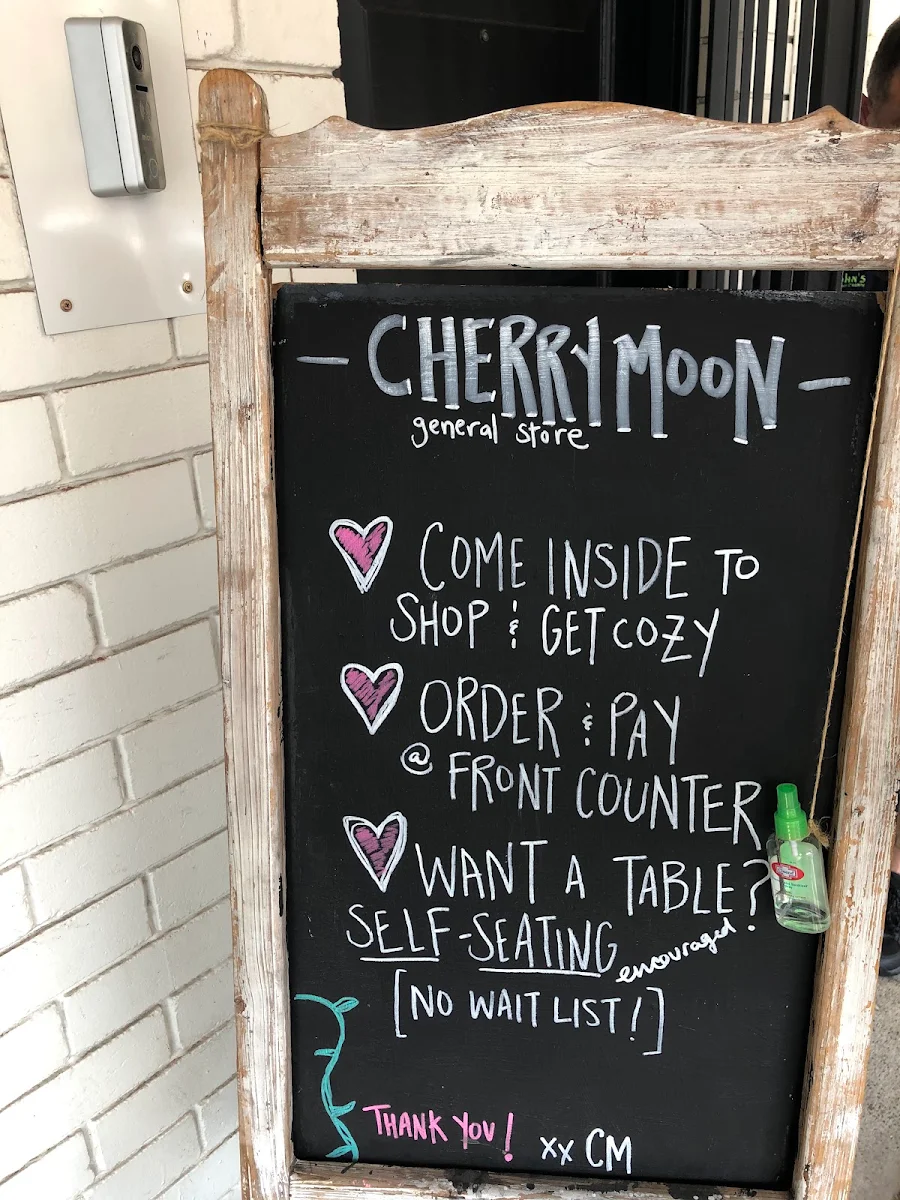 - CHERRY MOON -
general store
COME INSIDE TO
SHOP & GET COZY
ORDER & PAY
@ FRONT COUNTER
WANT A TABLE?
SELF-SEATING encouraged
[NO WAIT LIST!]
THANK YOU!
xx CM